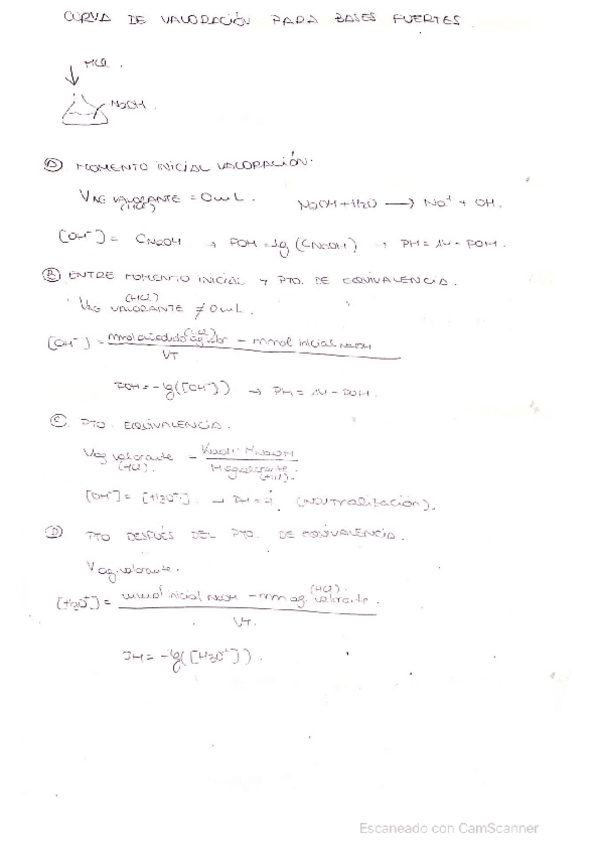 CURVA DE VALORACIÓN PARA BASES FUERTES.
HCl.
NaOH.
A MOMENTO INICIAL VALORACIÓN.
VAG VALORANTE = 0 mL. NaOH + H2O → Na+ + OH-
(HCl)
[OH-] = CNaOH → POH = -lg (CNaOH) → PH = 14 - POH.
B ENTRE MOMENTO INICIAL Y PTO. DE EQUIVALENCIA.
(HCl)
VAG VALORANTE ≠ 0 mL.
[OH-] = mmol añadido ag valor (HCl) - mmol inicial NaOH
VT
POH = -lg([OH-]) → PH = 14 - POH.
C PTO. EQUIVALENCIA.
Vag valorante = VNaOH · MNaOH
(HCl). Mag valorante
(HCl).
[OH-] = [H3O+] → PH = 7 (NEUTRALIZACIÓN).
D PTO DESPUÉS DEL PTO. DE EQUIVALENCIA.
Vag. valorante.
[H3O+] = mmol inicial NaOH - mm ag. valorante (HCl).
VT.
PH = -lg([H3O+]).
Escaneado con CamScanner